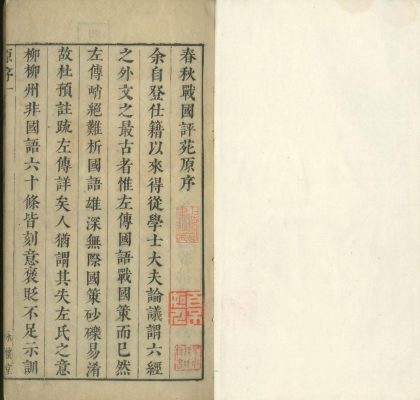 春秋戰國評苑原序
余自登仕籍以來得從學士大夫論議謂六經
之外文之最古者惟左傳國語戰國策而已然
左傳峭絕難析國語雄深無際國策砂礫易淆
故杜預註疏左傳詳矣人猶謂其失左氏之意
柳柳州非國語六十條皆刻意褒貶不足示訓
原序 一